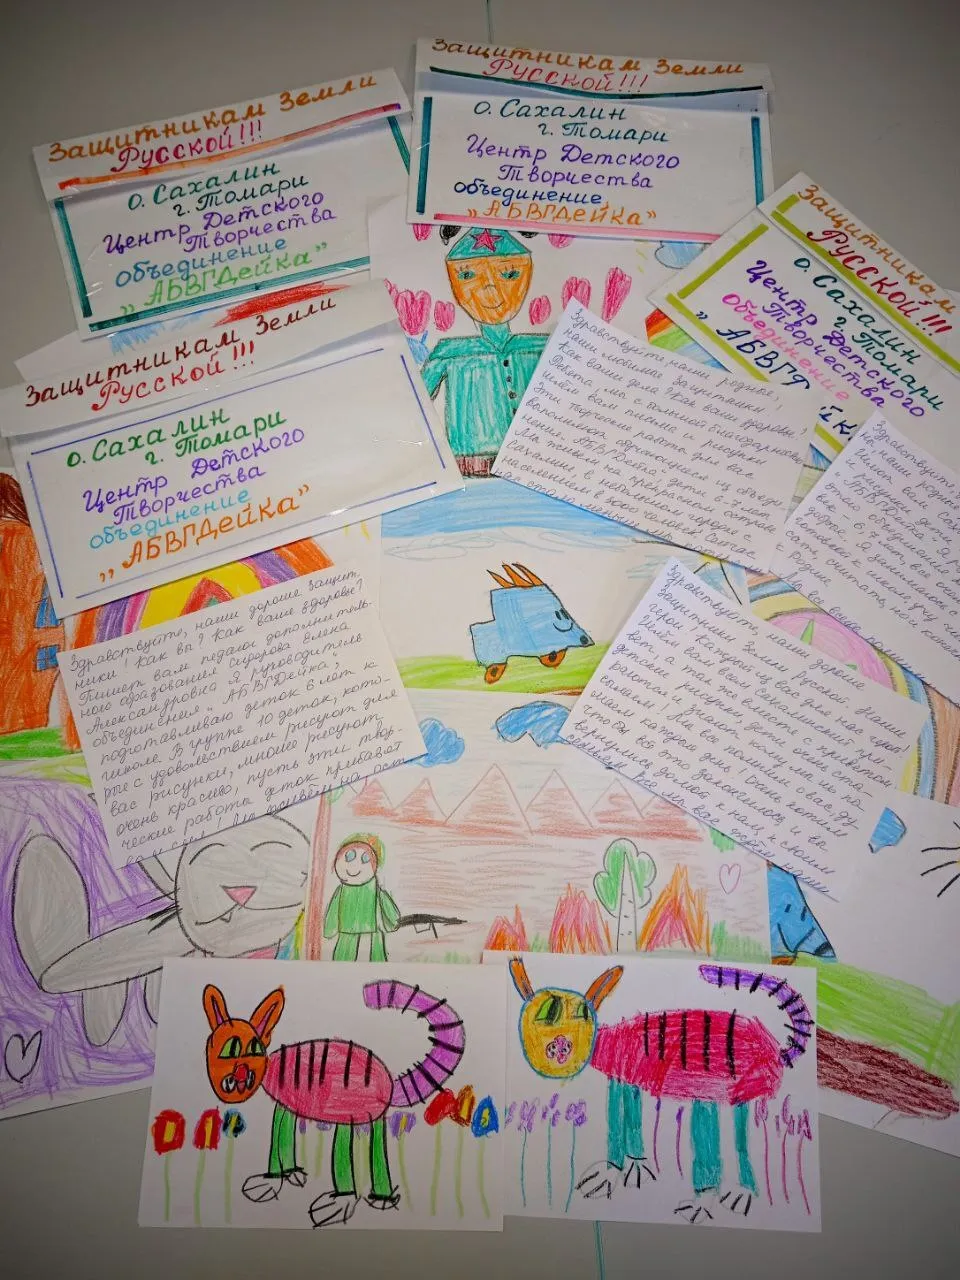 Защитникам Земли
Русской!!!
о. Сахалин
г. Томари
Центр Детского
Творчества
объединение
„АБВГДейка"
Защитникам Земли
Русской!!!
о. Сахалин
г. Томари
Центр Детского
Творчества
объединение
"АБВГДейка"
Защитникам
Русской!!!
о. Сахалин
г. Томари
Центр Детского
Творчества
объединение
„АБВГД
Защитникам Земли
Русской!!!
о. Сахалин
г. Томари
Центр Детского
Творчества
объединение
„АБВГДейка"
Здравствуйте, наши родные,
наши любимые защитники!
Как ваши дела? Как ваше здоровье?
Ребята, мы с большой благодарностью
шлём вам письма и рисунки
Эти творческие работы для вас
выполняют из объеди
нения „АБВГДейка" дети 6-7 лет.
Мы живём на прекрасном острове
Сахалин, в небольшом городке с
населением в 8000 человек. Сейчас
нас стало меньше
Здравствуйте
наши родные
Шлют вам Саха
и рисунки дети
„АБВГДейка". Я
этого объединения
век - 6-7 лет, все они
ребята. Я занимаюсь с
готовлю к школе, учу чи
сать, считать, но и
Родине
Здравствуйте, наши дорогие защит-
ники! Как вы? Как ваше здоровье?
Пишет вам педагог дополнитель-
ного образования Сидорова Елена
Александровна. Я руководитель
объединения „АБВГДейка",
подготавливаю деток 6 лет к
школе. В группе 10 деток, кото-
рые с удовольствием рисуют для
вас рисунки, много рисуют
очень красиво, пусть эти твор-
ческие работы деток прибавят
вам сил! Мы живём на ост
Здравствуйте наши дорогие
Защитники Земли Русской! Наши
герои! Каждый из вас для нас герой!
Шлём вам всем Сахалинский при-
вет, а так же вместе с приветом
детские рисунки. Дети очень ста-
рались! Знают, кому мы их по-
сылаем! Мы все помним о вас, ду-
маем каждый день! Очень хотим
чтобы всё это закончилось и вы
вернулись домой к нам, к своим
семьям. Все мы вас ждём, наши